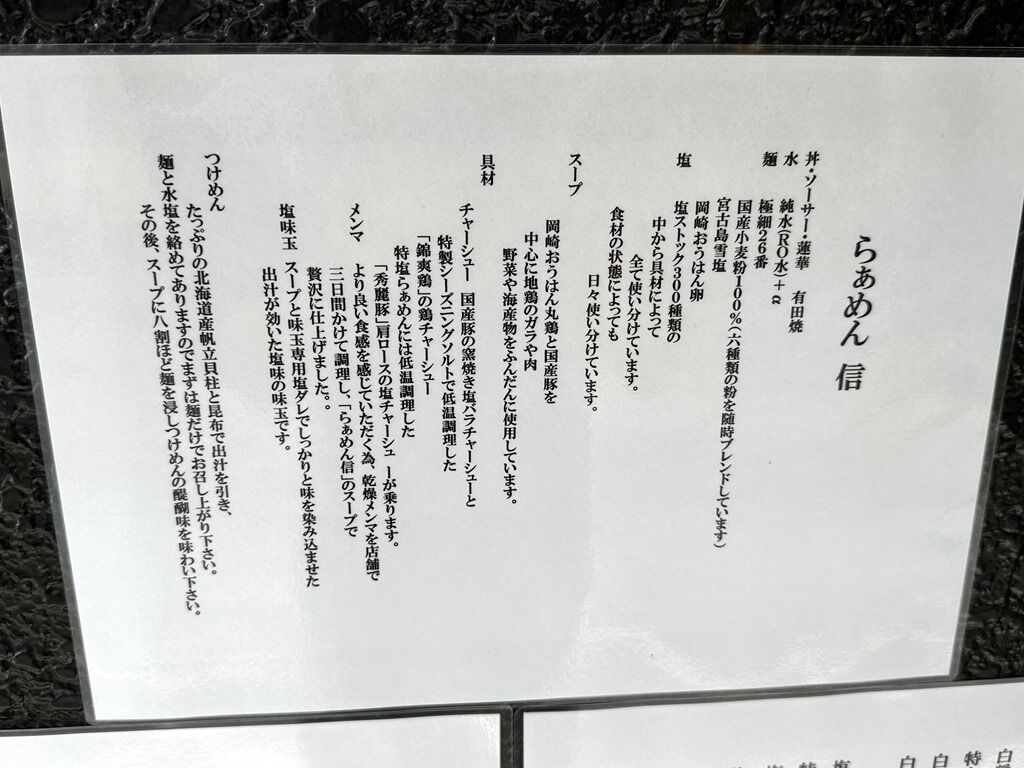 らぁめん 信
丼・ソーサー・蓮華 有田焼
水 純水(RO水)+α
麺 極細26番
国産小麦粉100%(六種類の粉を随時ブレンドしています)
宮古島雪塩
岡崎おうはん卵
塩 塩ストック300種類の
中から具材によって
全て使い分けています。
食材の状態によっても
日々使い分けています。
スープ
岡崎おうはん丸鶏と国産豚を
中心に地鶏のガラや肉
野菜や海産物をふんだんに使用しています。
具材
チャーシュー 国産豚の窯焼き塩バラチャーシューと
特製シーズニングソルトで低温調理した
「錦爽鶏」の鶏チャーシュー
特塩らぁめんには低温調理した
「秀麗豚」肩ロースの塩チャーシューが乗ります。
メンマ より良い食感を感じていただく為、乾燥メンマを店舗で
三日間かけて調理し、「らぁめん信」のスープで
贅沢に仕上げました。。
塩味玉 スープと味玉専用塩ダレでしっかりと味を染み込ませた
出汁が効いた塩味の味玉です。
つけめん
たっぷりの北海道産帆立貝柱と昆布で出汁を引き、
麺と水塩を絡めてありますのでまずは麺だけでお召し上がり下さい。
その後、スープに八割ほど麺を浸しつけめんの醍醐味を味わい下さい。
特
白
白
塩
特